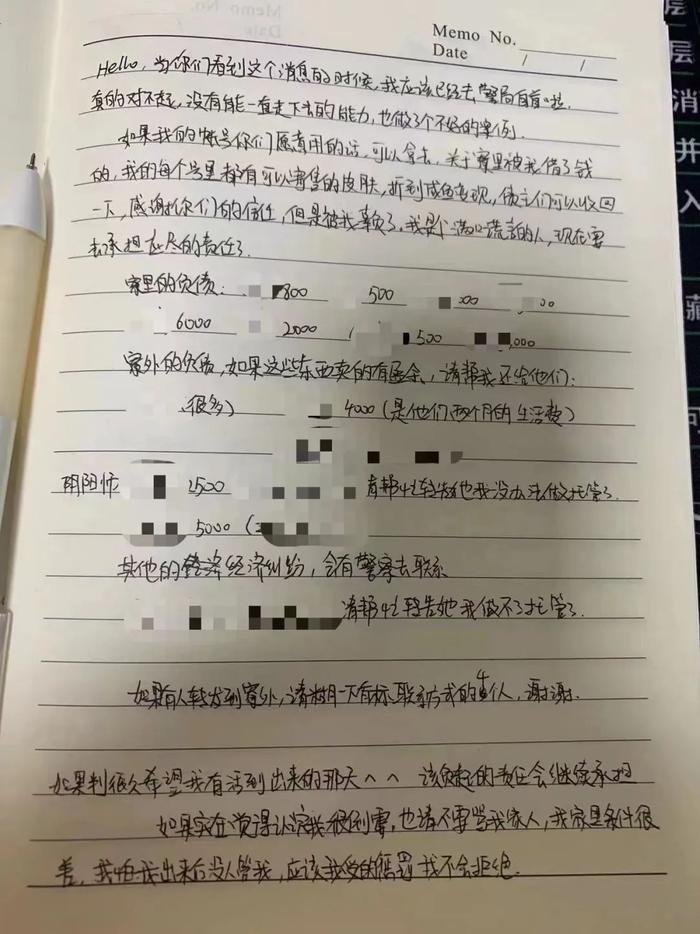 Memo No.
Date / /
Hello，当你们看到这个消息的时候，我应该已经去警局自首啦
真的对不起，没有能一直走下去的能力，也做了个不好的案例.
如果我的帐号你们愿意用的话，可以拿去，关于寮里被我借了钱
的，我的每个号里都有可以寄售的皮肤，折到咸鱼变现，债主们可以收回
一下，感谢你们的信任，但是被我辜负了，我是个满口谎言的人，现在要
去承担应尽的责任了.
寮里的负债： 800 500 00 00
6000 2000 ( 500 ,000
寮外的负债，如果这些东西卖的有盈余，请帮我还给他们：
很多) 4000 (是他们两个月的生活费)
阴阳师 2500 请帮忙转告他我没办法做托管了.
5000 (
其他的经济纠纷，会有警察去联系
请帮忙转告她我做不了托管了.
如果有人转发到寮外，请糊一下有标联系方式的4个人，谢谢.
如果判很久希望我有活到出来的那天^^ 该负起的责任会继续承担
如果实在觉得认识我很倒霉，也请不要骂我家人，我家里条件很
差，我怕我出来后没人管我，应该我受的惩罚我不会拒绝.